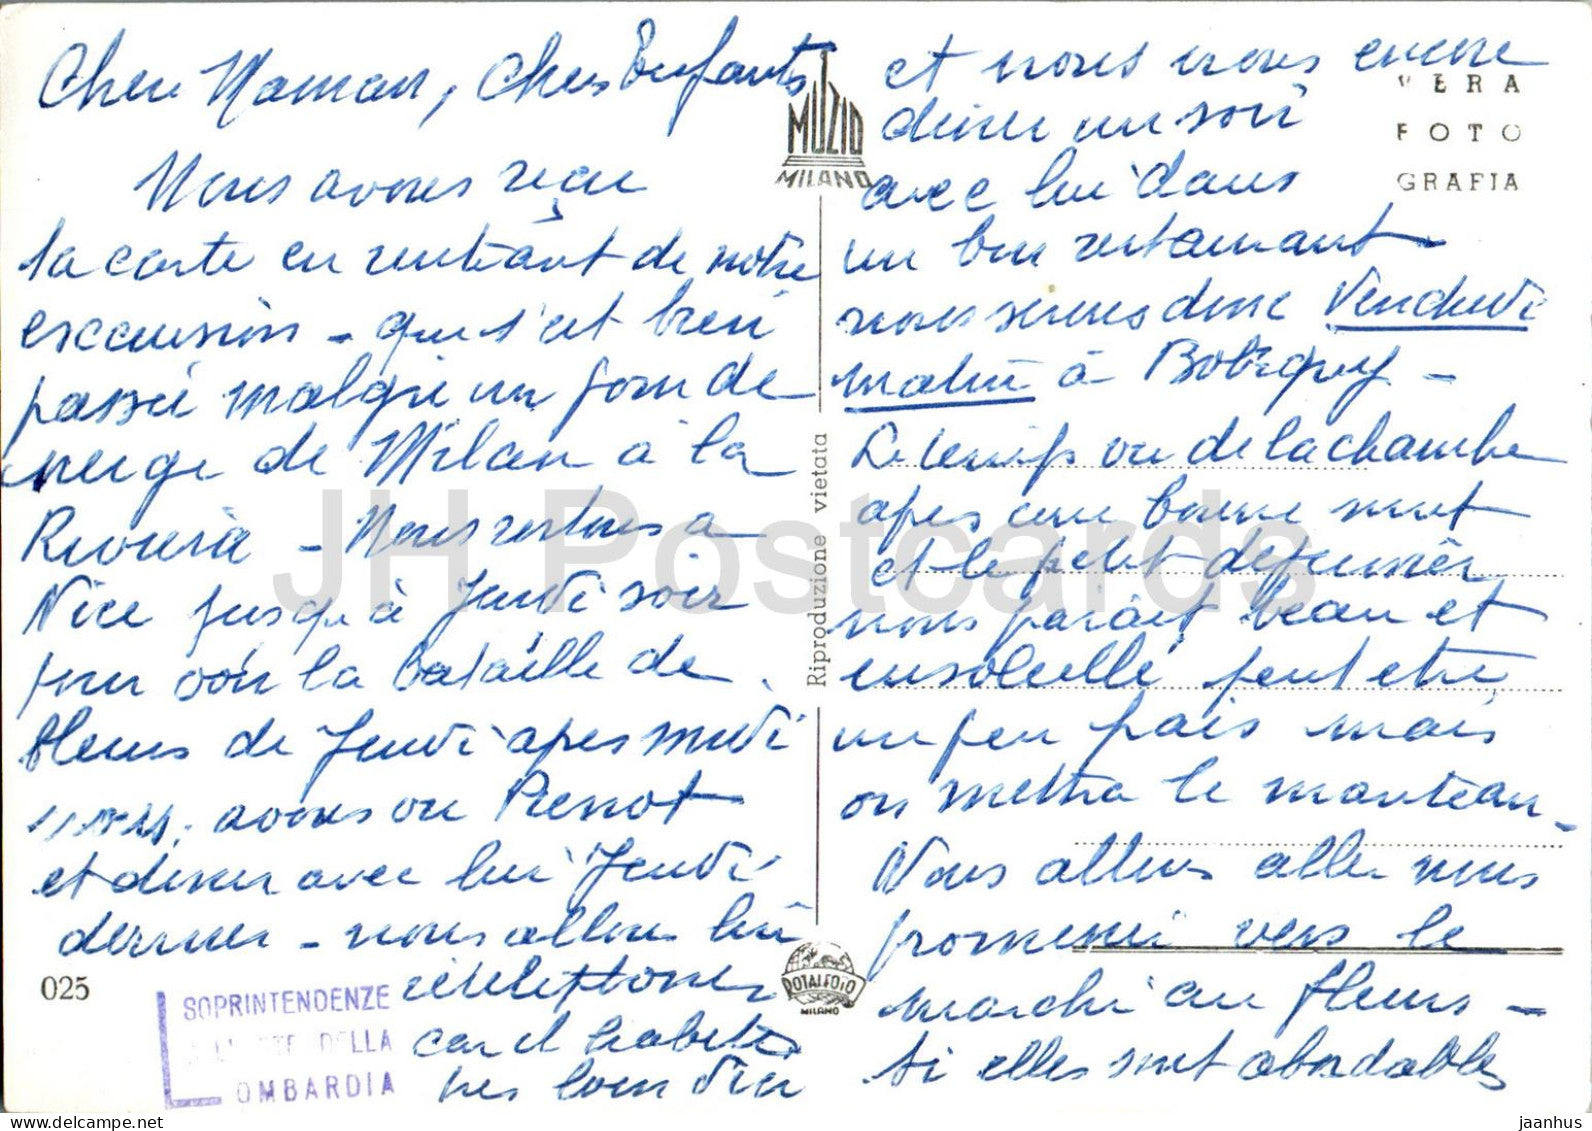 Chere Maman, Chers Enfants
Nous avons reçu
la carte en rentrant de notre
excursion - qui s'est bien
passée malgré un fond de
neige de Milan à la
Riviera - Nous restons à
Nice jusqu'à Jeudi soir
pour voir la Bataille de
fleurs de Jeudi apres midi
avons vu Pierrot
et diner avec lui Jeudi
dernier - nous allons lui
retelephoner
car il habite
très loin d'ici
et nous irons encore
diner un soir
avec lui dans
un bon restaurant
nous serons donc Vendredi
matin à Bobigny -
Le temps vu de la chambre
apres une bonne nuit
et le petit dejeuner
nous parait beau et
ensoleillé peut etre
un peu frais mais
on mettra le manteau -
Nous allons aller nous
promener vers le
marché au fleurs -
si elles sont abordables
MUZIO
MILANO
VERA
FOTO
GRAFIA
Riproduzione vietata
ROTALFOTO
MILANO
025
SOPRINTENDENZE
DELLA
LOMBARDIA
JH Postcards
jaanhus / www.delcampe.net